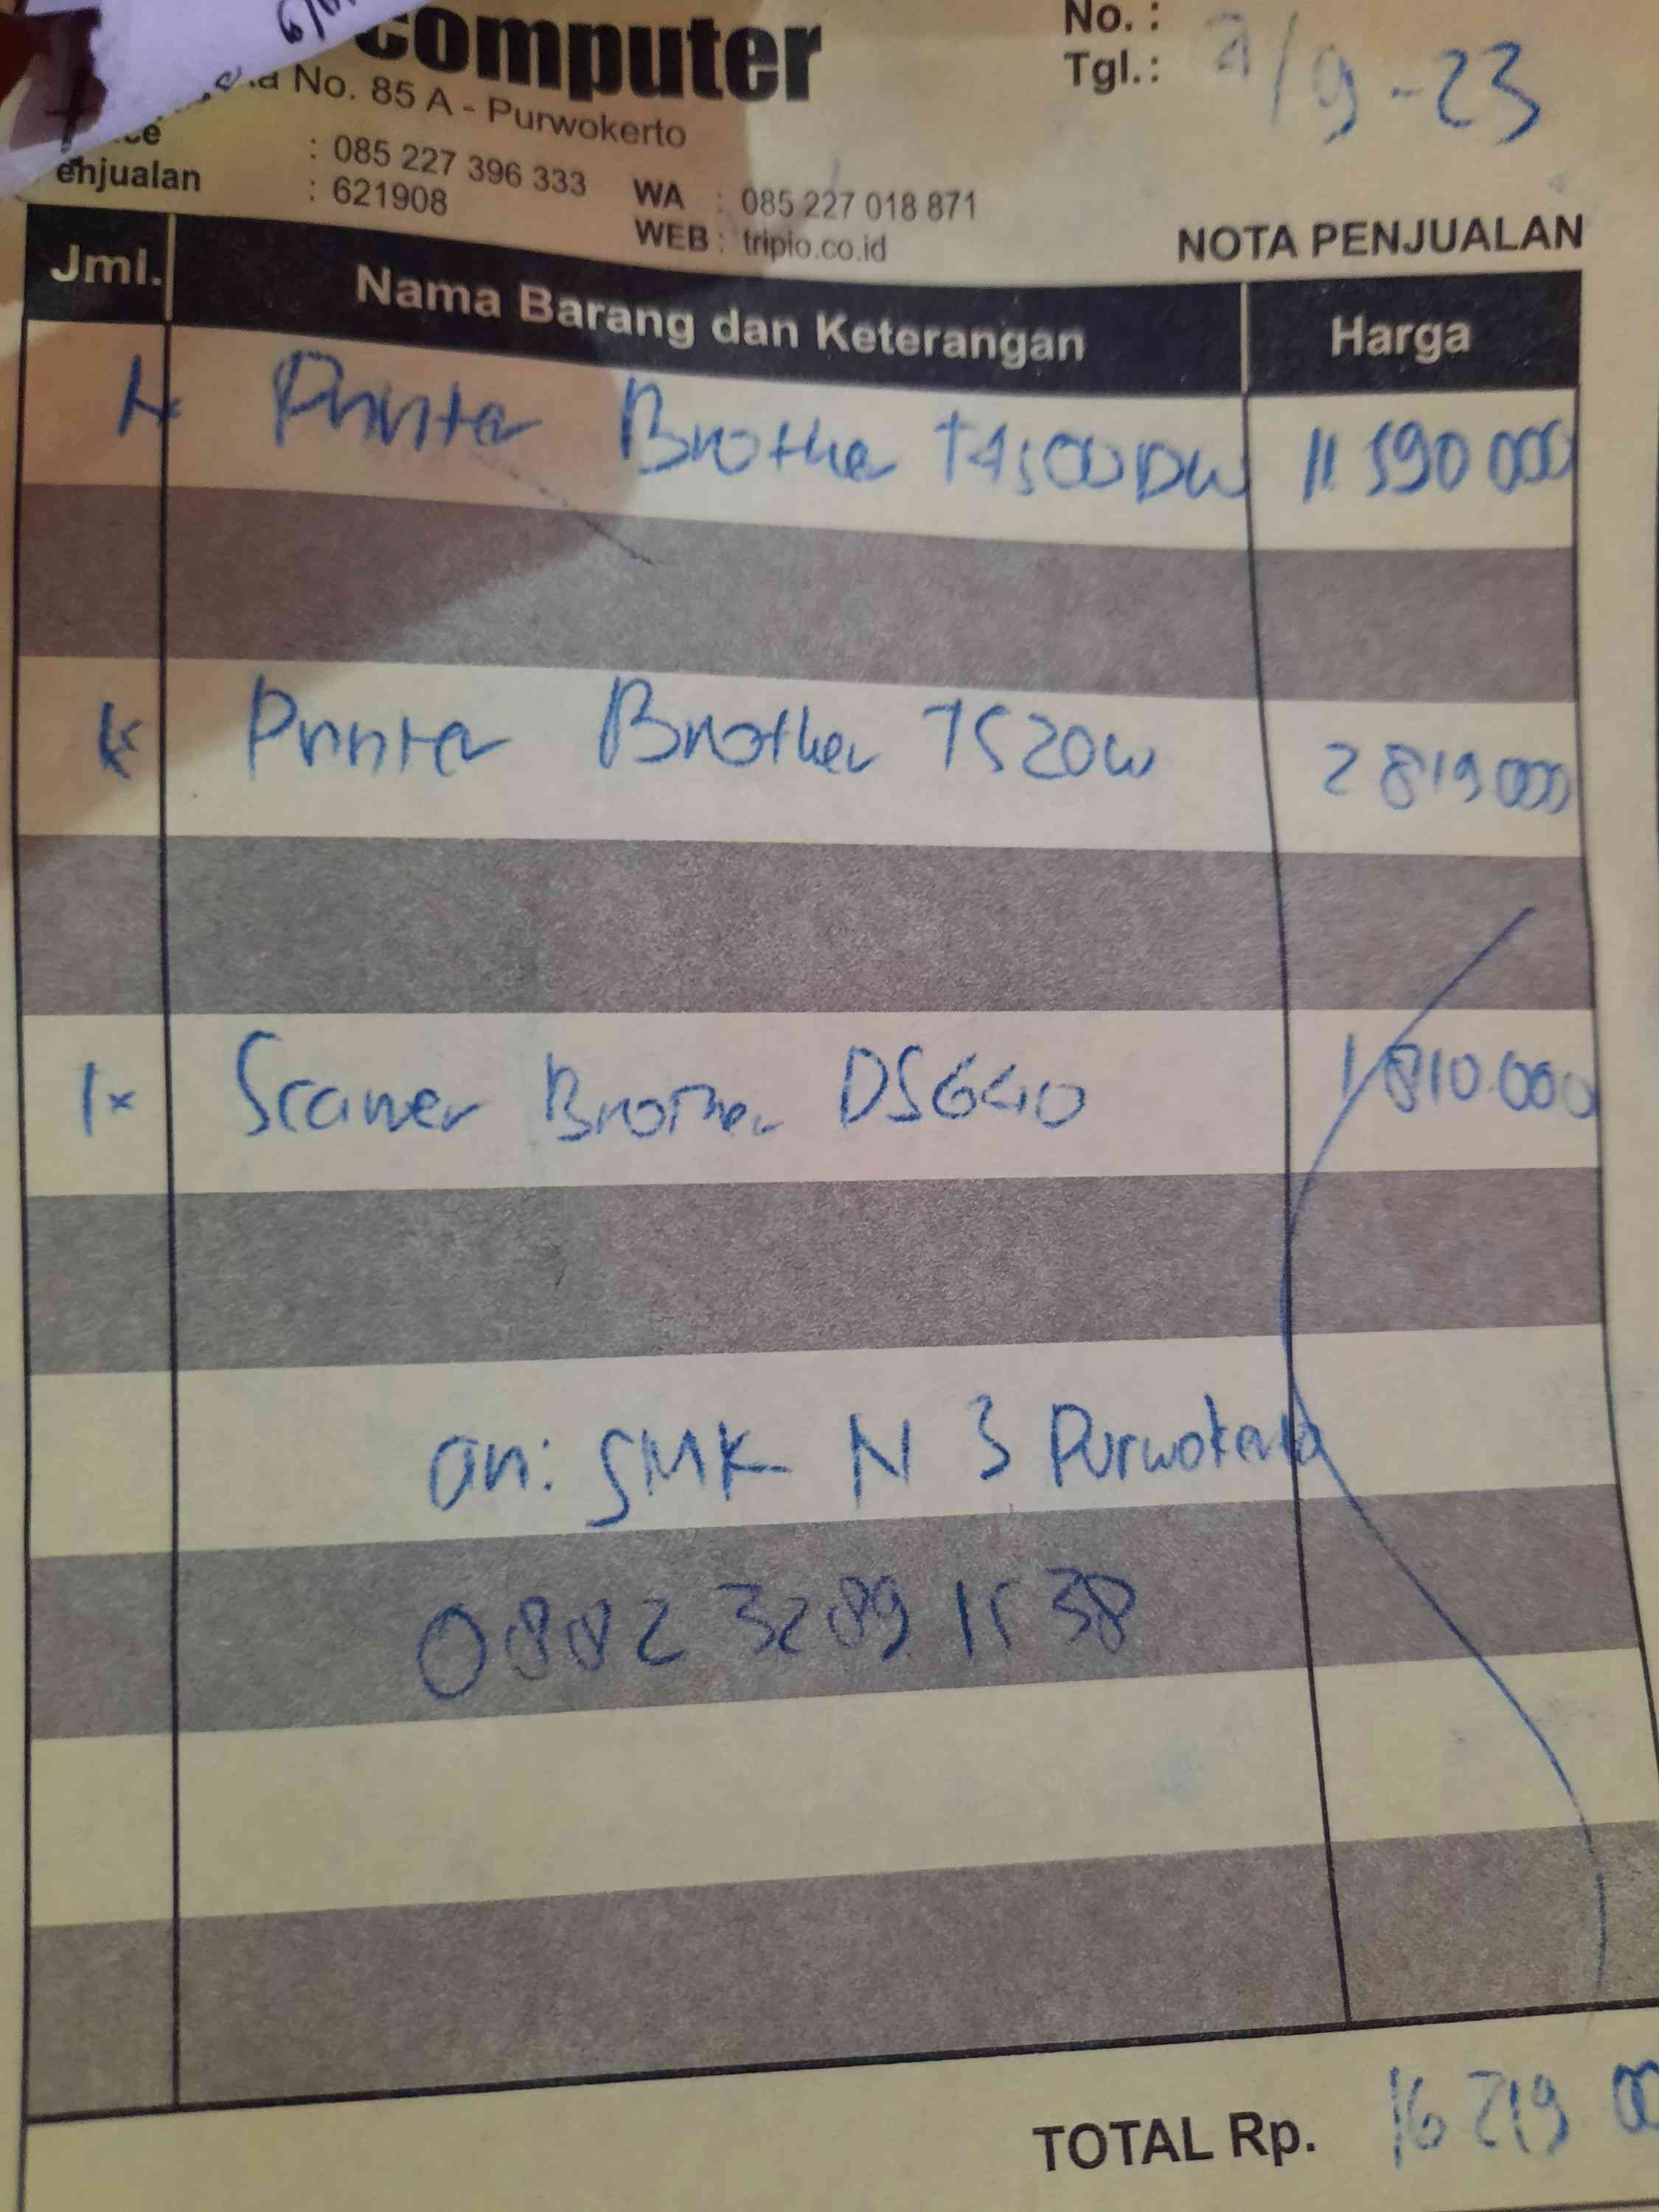 computer
No. :
Tgl.: 7/9-23
No. 85 A - Purwokerto
: 085 227 396 333
enjualan : 621908
WA : 085 227 018 871
WEB : tripio.co.id
NOTA PENJUALAN
Jml. Nama Barang dan Keterangan Harga
1x Printer Brother T4500DW 11 590 000
1x Printer Brother T520W 2 819 000
1x Scanner Brother DS640 1 810 000
an: SMK N 3 Purwokerto
0882 3289 1538
TOTAL Rp. 16 219 00